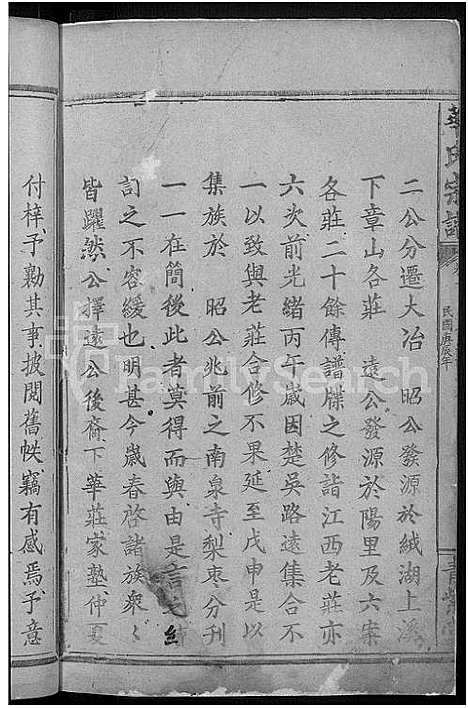 華氏宗譜
民國庚辰年
二公分遷大冶　昭公發源於絨湖上溪
下章山各莊　遠公發源於陽里及六案
各莊二十餘傳譜牒之修詣江西老莊亦
六次前光緒丙午歲因楚吳路遠集合不
一以致與老莊合修不果延至戊申是以
集族於　昭公兆前之南泉寺梨枣分刊
一一在簡後此者莫得而與由是言之
訂之不容緩也明甚今歲春啓諸族衆々
皆躍然公擇遠公後裔下華莊家塾仲夏
付梓予勷其事披閱舊帙竊有感焉予意
FamilySearch